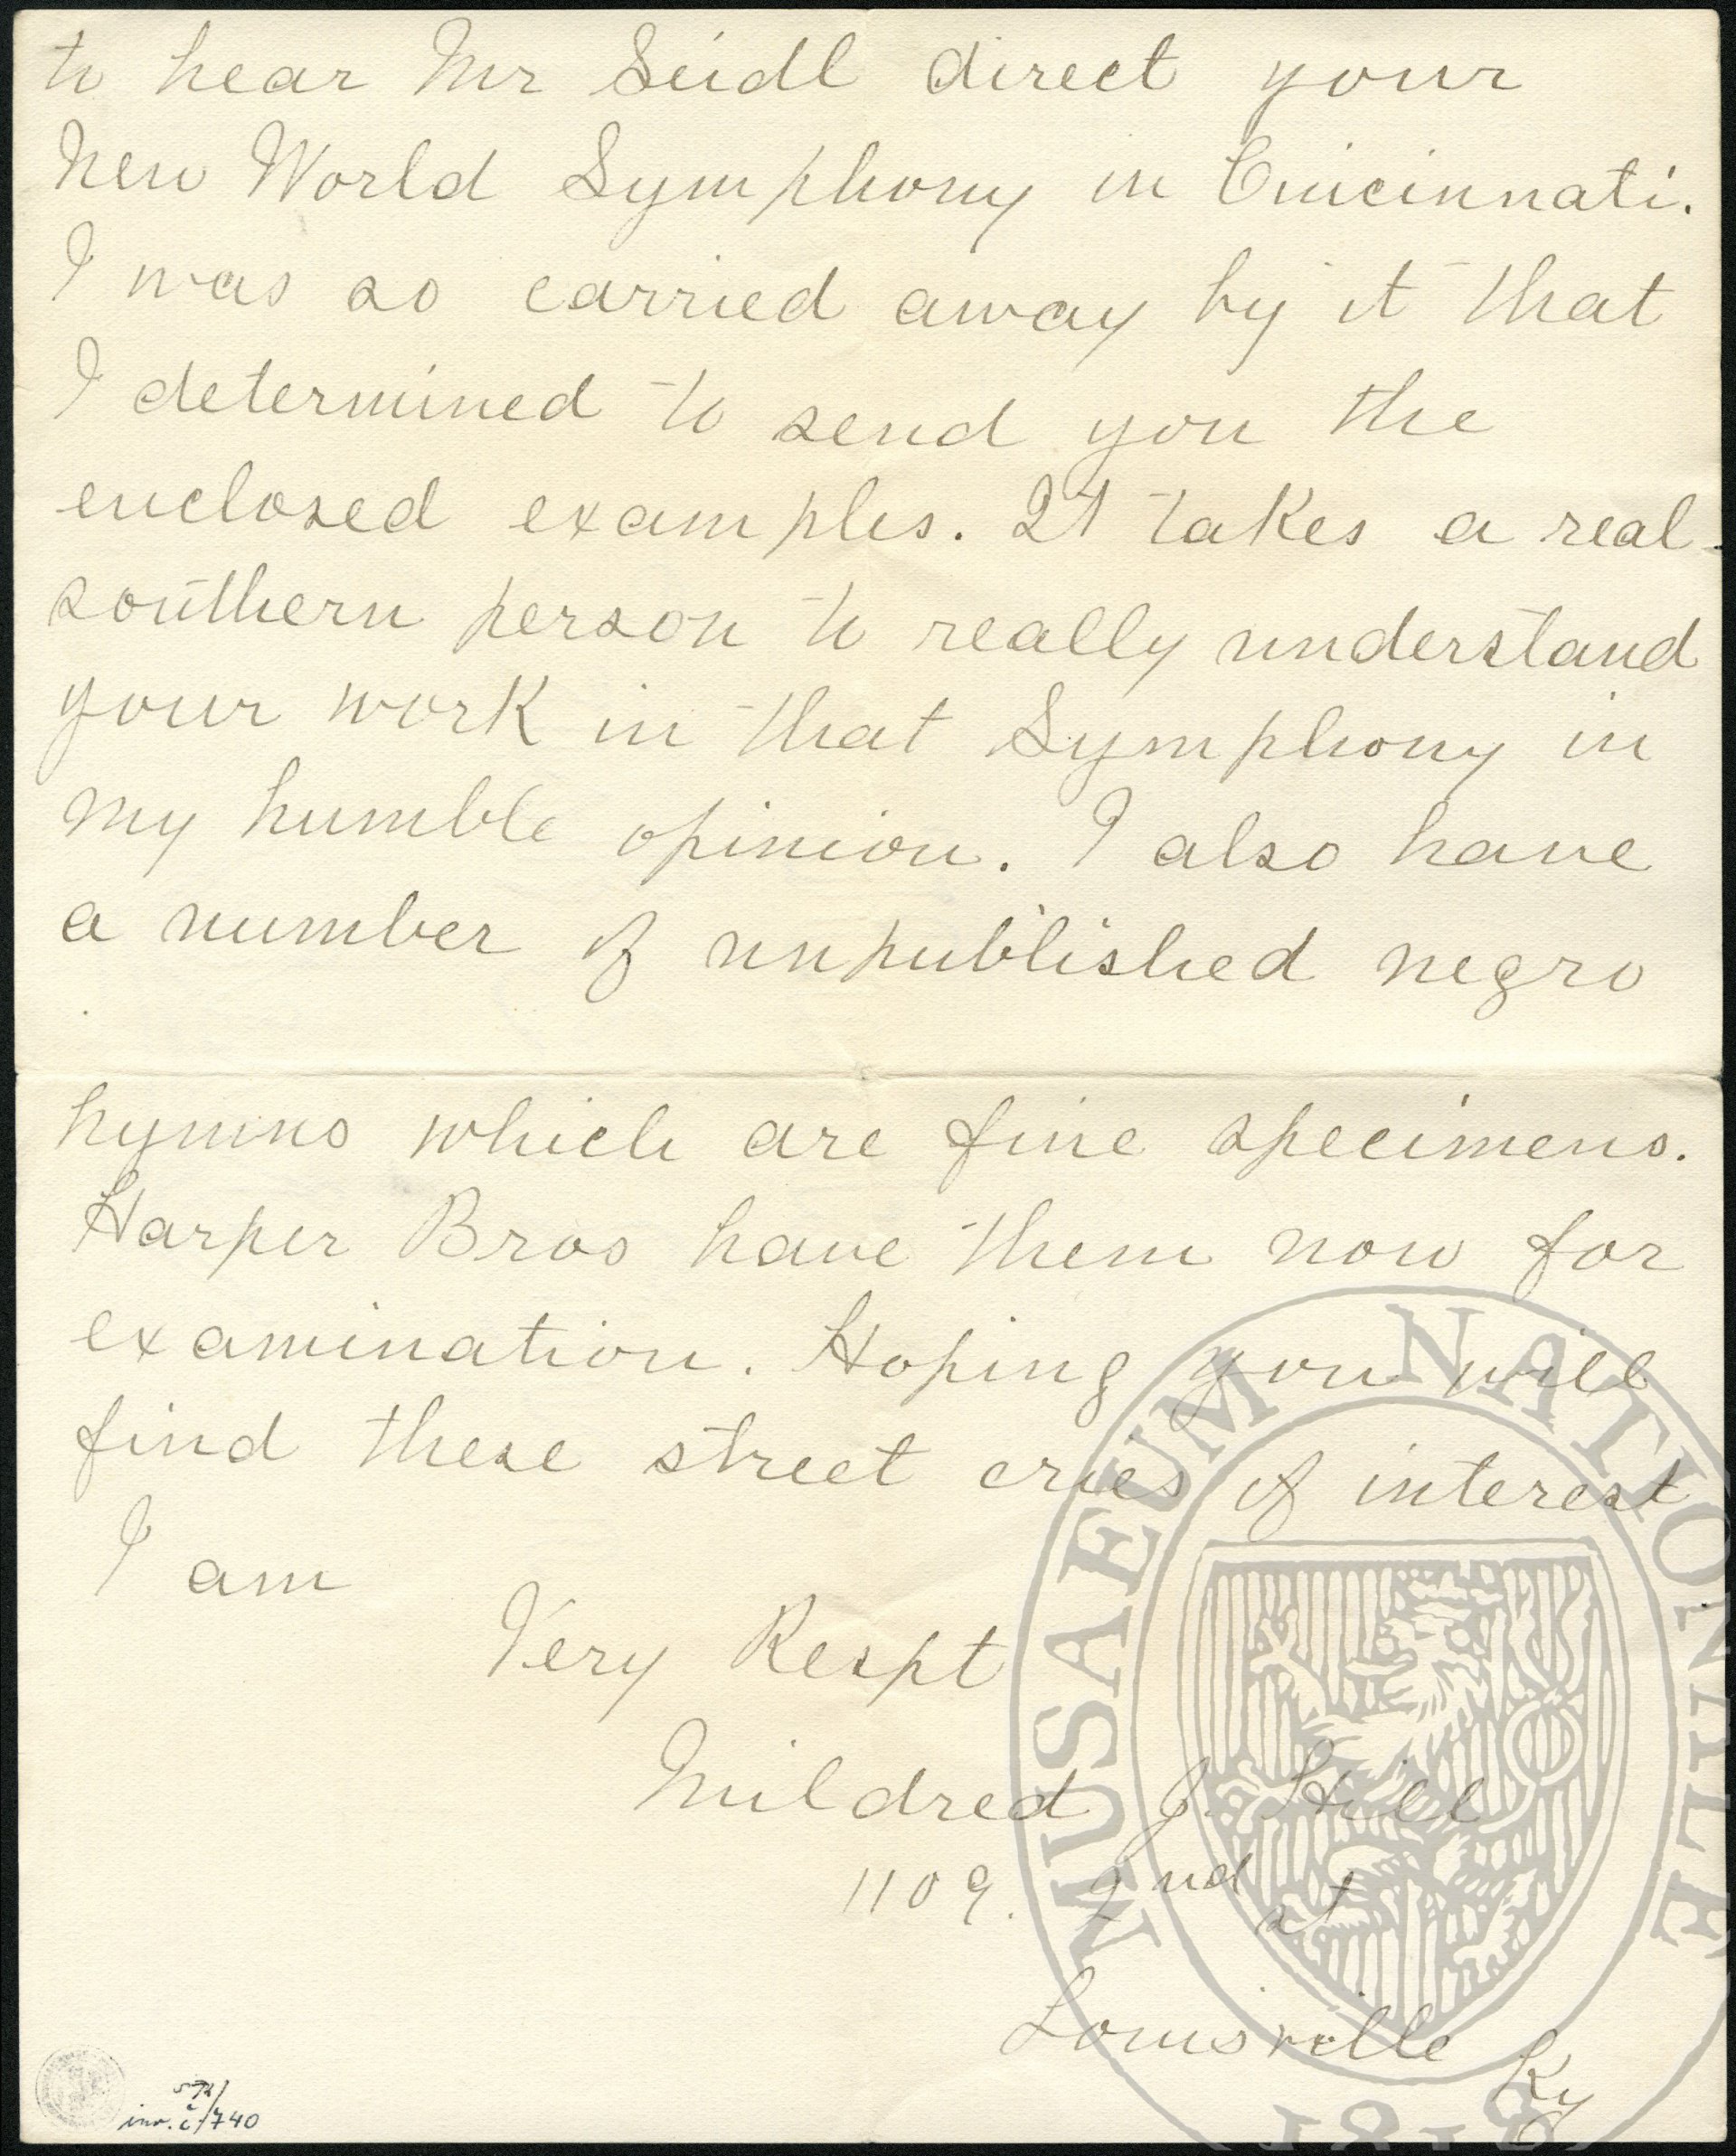 to hear Mr Seidl direct your
New World Symphony in Cincinnati.
I was so carried away by it that
I determined to send you the
enclosed examples. It takes a real
southern person to really understand
your work in that Symphony in
my humble opinion. I also have
a number of unpublished negro
hymns which are fine specimens.
Harper Bros have them now for
examination. Hoping you will
find these street cries of interest
I am
Very Respt
Mildred J. Hill
1109. 2nd st
Louisville Ky
MUSAEUM NATIONALE
1818
inv. č/740